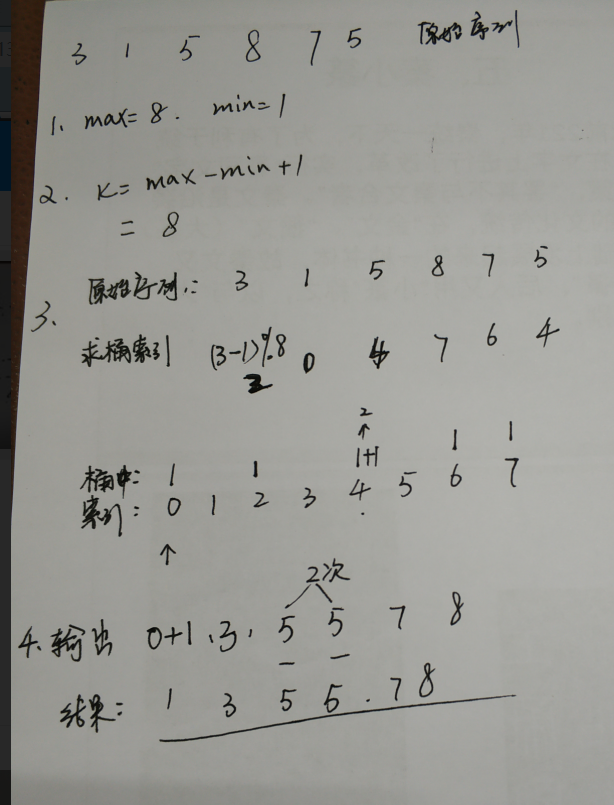 3 1 5 8 7 5 原始序列
1. max=8. min=1
2. K=max-min+1
= 8
3.
原始序列: 3 1 5 8 7 5
求桶索引 (3-1)%8 0 4 7 6 4
2
2
↑
桶中: 1 1 1+1 1 1
索引: 0 1 2 3 4 5 6 7
↑
2次
4.输出 0+1、3、5 5 7 8
结果: 1 3 5 5.7 8